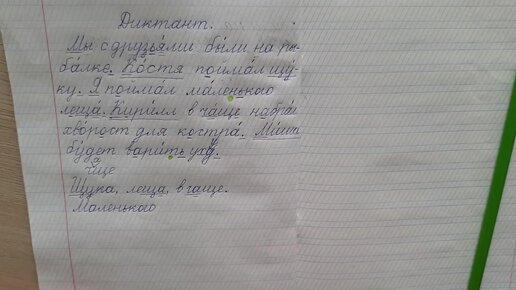 Диктант.
Мы с друзьями были на ры-
балке. Костя поймал щу-
ку. Я поймал маленького
леща. Кирилл в чаще набрал
хворост для костра. Миша
будет варить уху.
ча ще
Щука, леща, в чаще.
Маленького